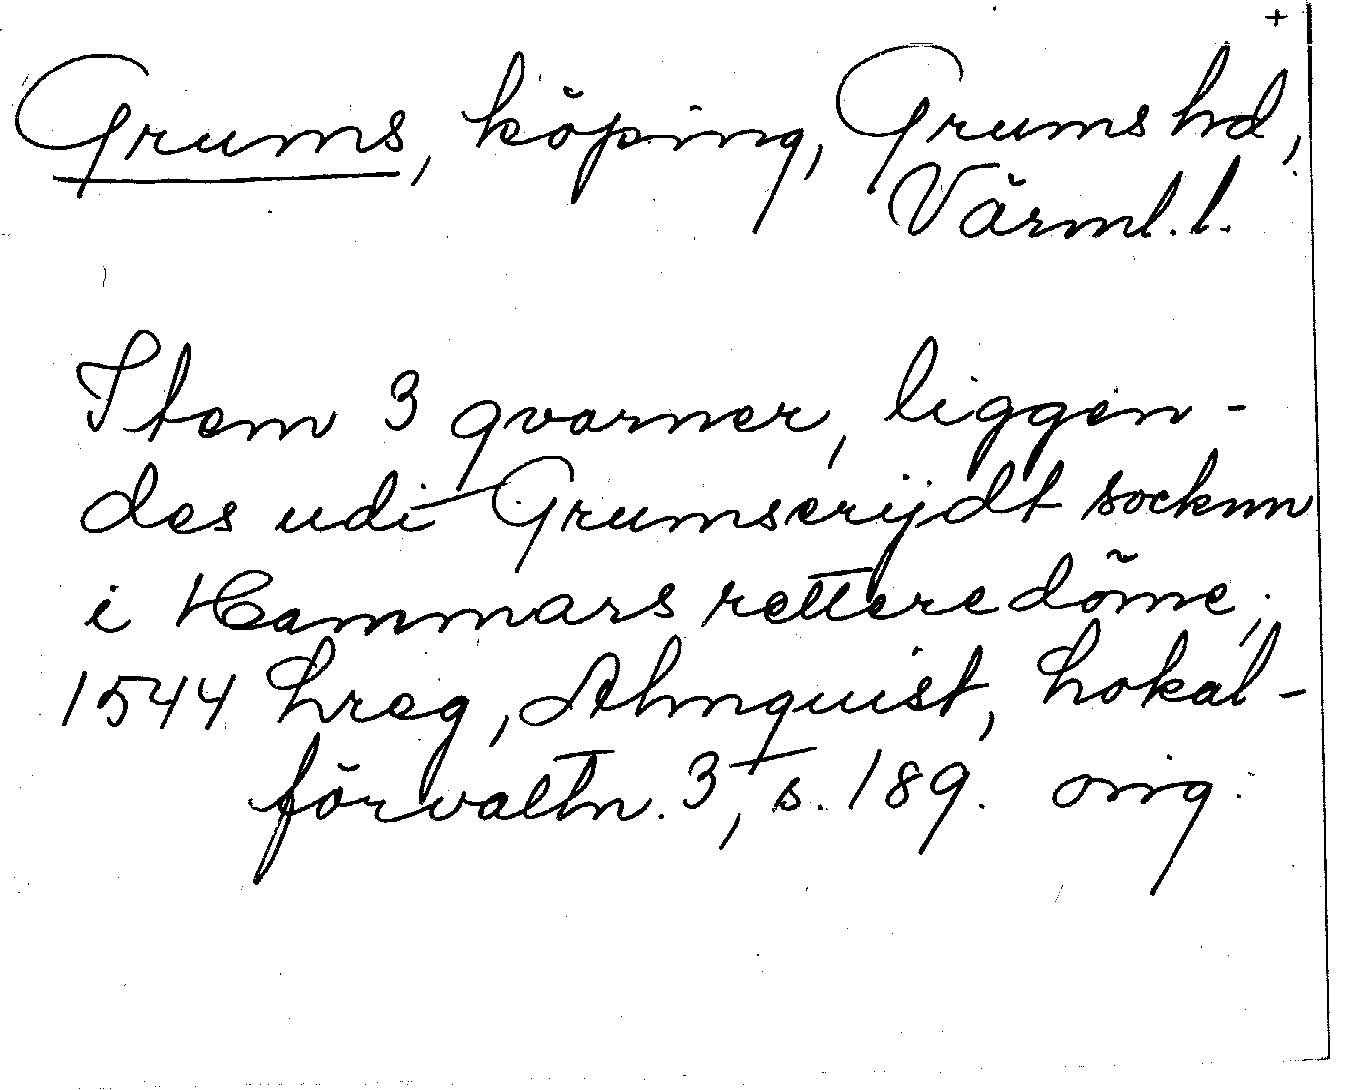 +
Grums, köping, Grums hd,
Värml. l.
Item 3 qvarner, liggen-
des udi Grumserijdt socknn
i Hammars rettere döme,
1544 Lreg, Almquist, Lokal-
förvaltn. 3, s. 189. orig.